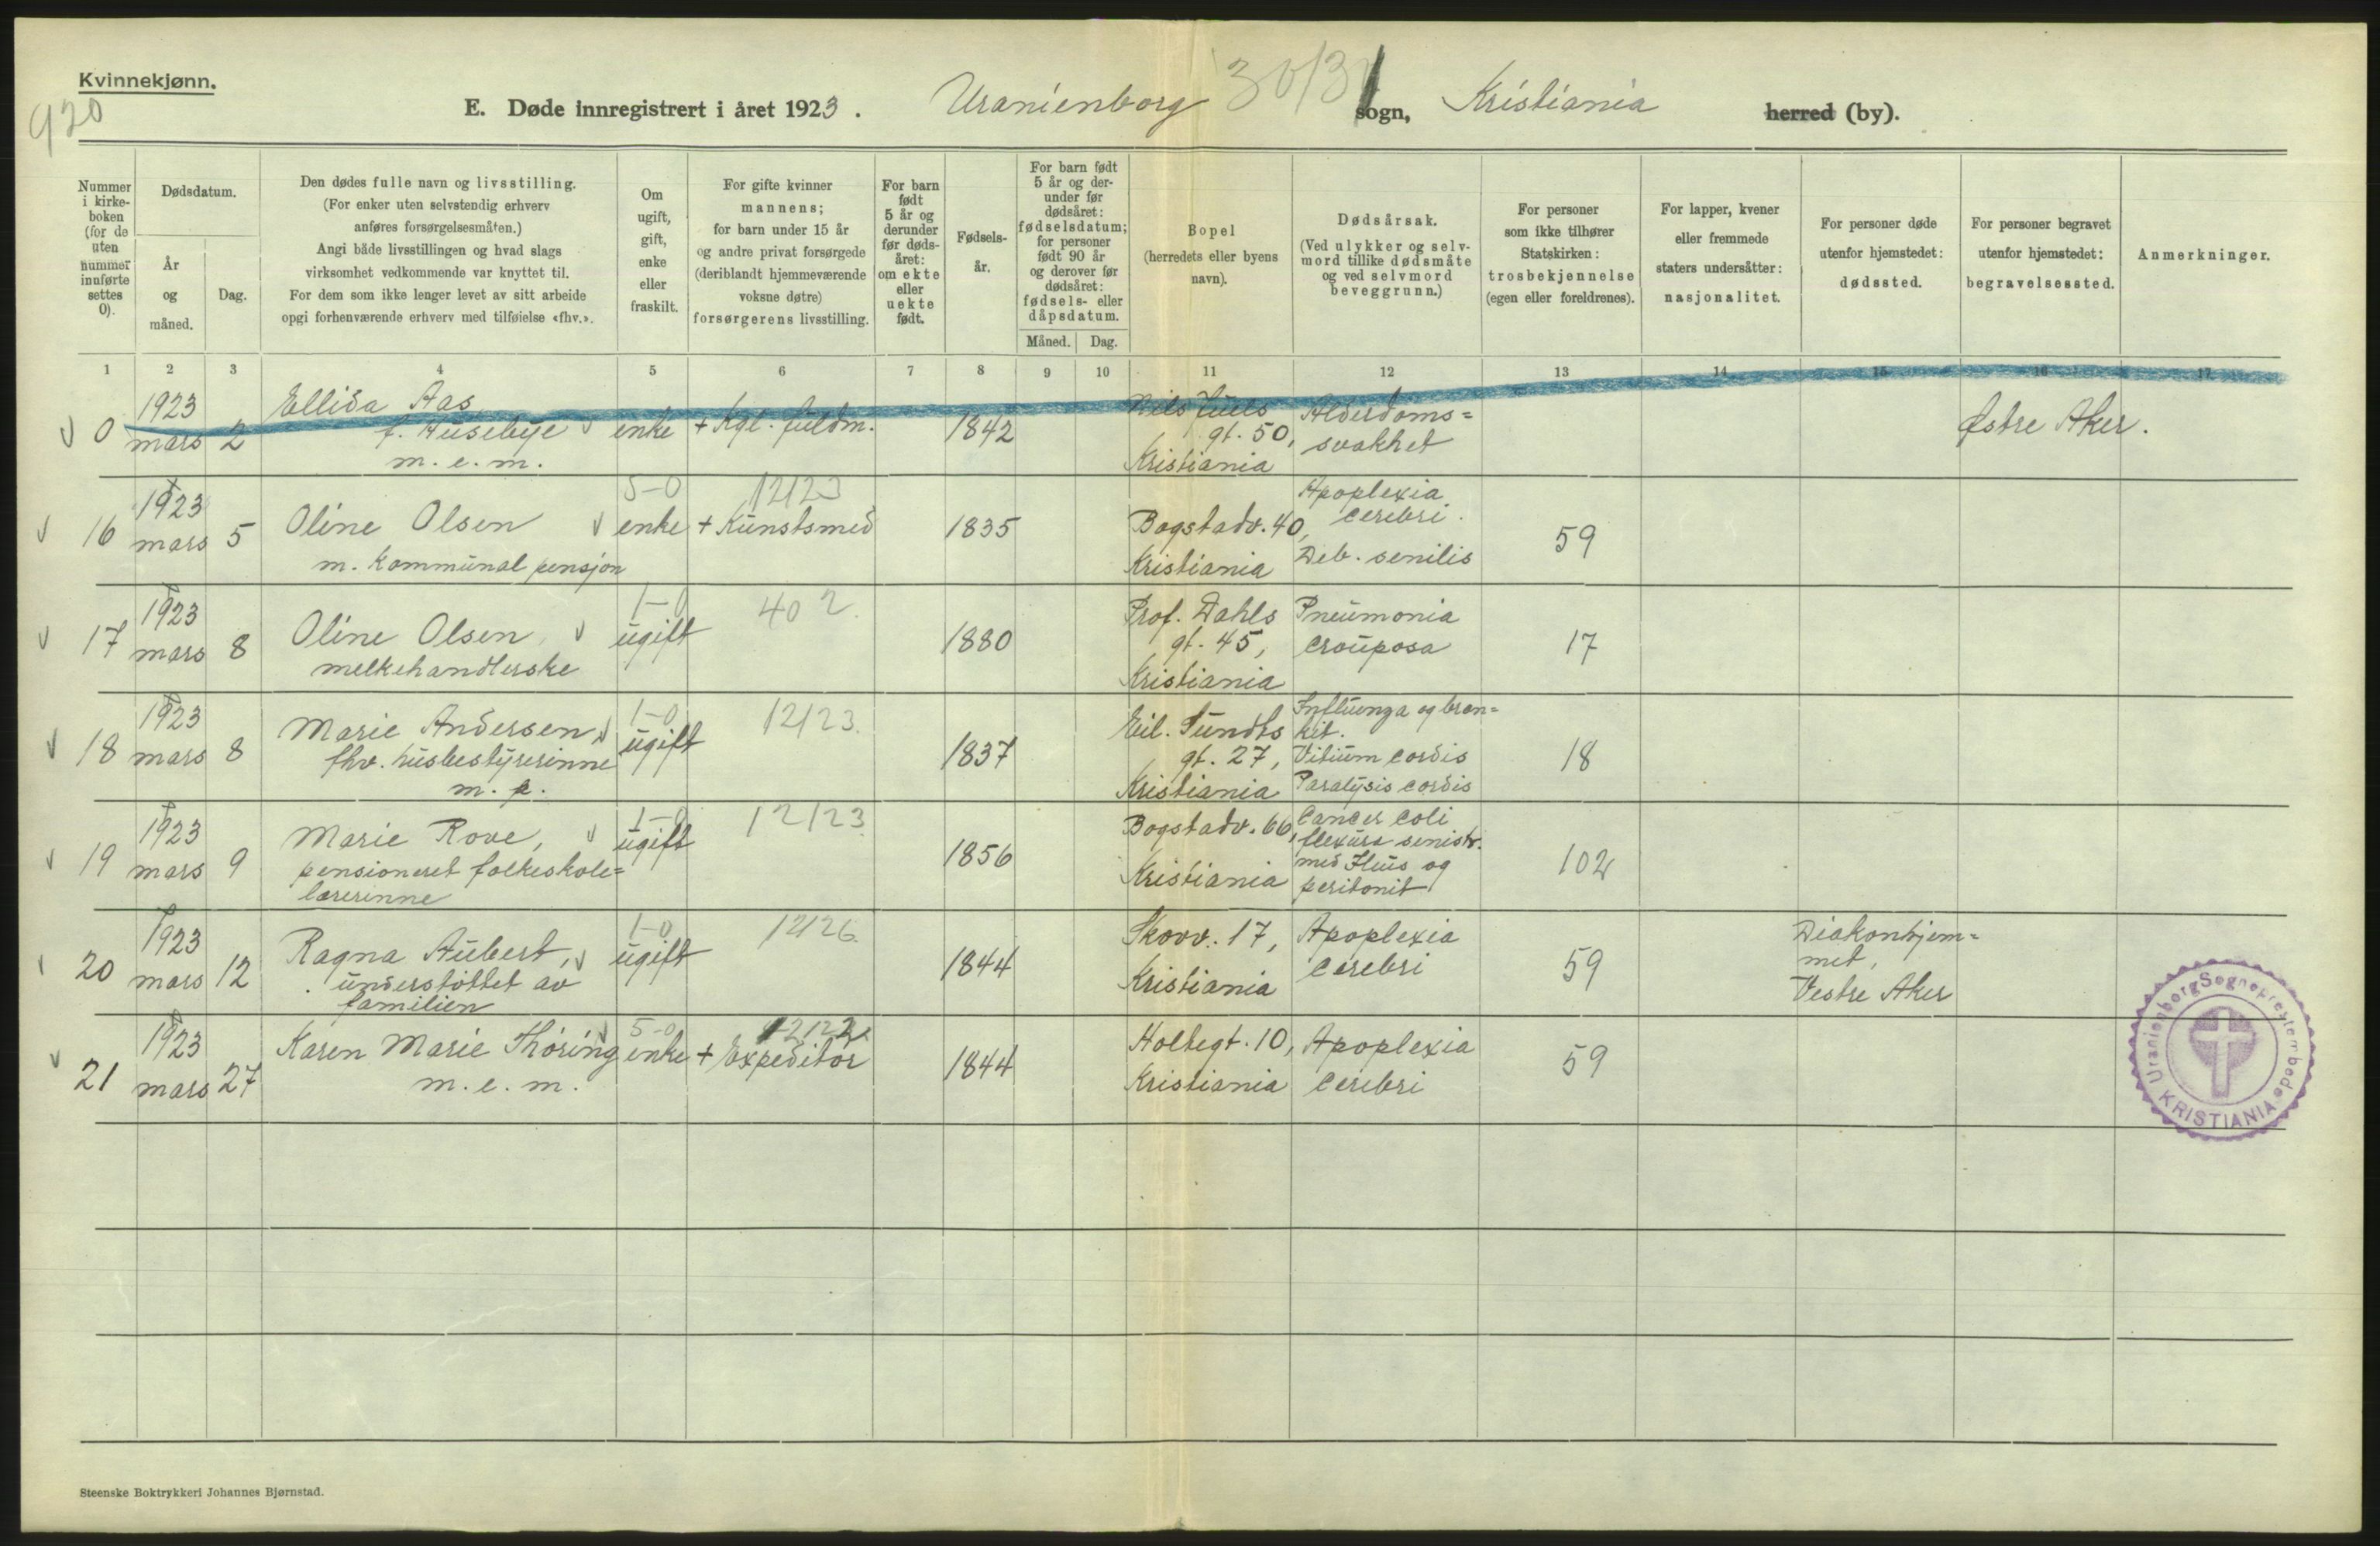 Kvinnekjønn.
920
E. Døde innregistrert i året 1923. Uranienborg sogn, Kristiania herred (by).
30/31
Nummer i kirke- boken (for de uten nummer innførte settes 0).
Dødsdatum.
År og måned.
Dag.
Den dødes fulle navn og livsstilling.
(For enker uten selvstendig erhverv
anføres forsørgelsesmåten.)
Angi både livsstillingen og hvad slags
virksomhet vedkommende var knyttet til.
For dem som ikke lenger levet av sitt arbeide
opgi forhenværende erhverv med tilføielse «fhv.».
Om ugift, gift, enke eller fraskilt.
For gifte kvinner
mannens;
for barn under 15 år
og andre privat forsørgede
(deriblandt hjemmeværende
voksne døtre)
forsørgerens livsstilling.
For barn født 5 år og derunder før døds- året: om ekte eller uekte født.
Fødsels- år.
For barn født
5 år og der-
under før
dødsåret:
fødselsdatum;
for personer
født 90 år
og derover før
dødsåret:
fødsels- eller
dåpsdatum.
Måned. Dag.
Bopel
(herredets eller byens
navn).
Dødsårsak.
(Ved ulykker og selv-
mord tillike dødsmåte
og ved selvmord
beveggrunn.)
For personer
som ikke tilhører
Statskirken:
trosbekjennelse
(egen eller foreldrenes).
For lapper, kvener
eller fremmede
staters undersåtter:
nasjonalitet.
For personer døde
utenfor hjemstedet:
dødssted.
For personer begravet
utenfor hjemstedet:
begravelsessted.
Anmerkninger.
1 2 3 4 5 6 7 8 9 10 11 12 13 14 15 16 17
0 1923 mars 2 Ellida Aas f. Husebye m. e. m. enke + Kgl. fuldm. 1842 Nils Juels gt. 50, Kristiania Alderdoms= svakhet Østre Aker.
16 1923 mars 5 Oline Olsen m. kommunal pensjon 5-0 enke 12123 + Kunstsmed 1835 Bogstadv. 40, Kristiania Apoplexia cerebri. Deb. senilis 59
17 1923 mars 8 Oline Olsen, melkehandlerske 1-0 ugift 402. 1880 Prof. Dahls gt. 45, Kristiania Pneumonia crouposa 17
18 1923 mars 8 Marie Andersen, fhv. husbestyrerinne m. p. 1-0 ugift 12123. 1837 Eil. Sundts gt. 27, Kristiania Influenza og bron= kit. Vitium cordis Paralysis cordis 18
19 1923 mars 9 Marie Rove, pensioneret folkeskole= lærerinne 1-0 ugift 12123 1856 Bogstadv. 66, Kristiania Cancer coli flexura senistr. med Ileus og peritonit 102
20 1923 mars 12 Ragna Aubert, understøttet av familien 1-0 ugift 12126. 1844 Skovv. 17, Kristiania Apoplexia cerebri 59 Diakonhjem= met, Vestre Aker
21 1923 mars 27 Karen Marie Thoring m. e. m. 5-0 enke 12122 + Expeditør 1844 Holtegt. 10, Kristiania Apoplexia cerebri 59
Uranienborg Sogneprestembede KRISTIANIA
Steenske Boktrykkeri Johannes Bjørnstad.